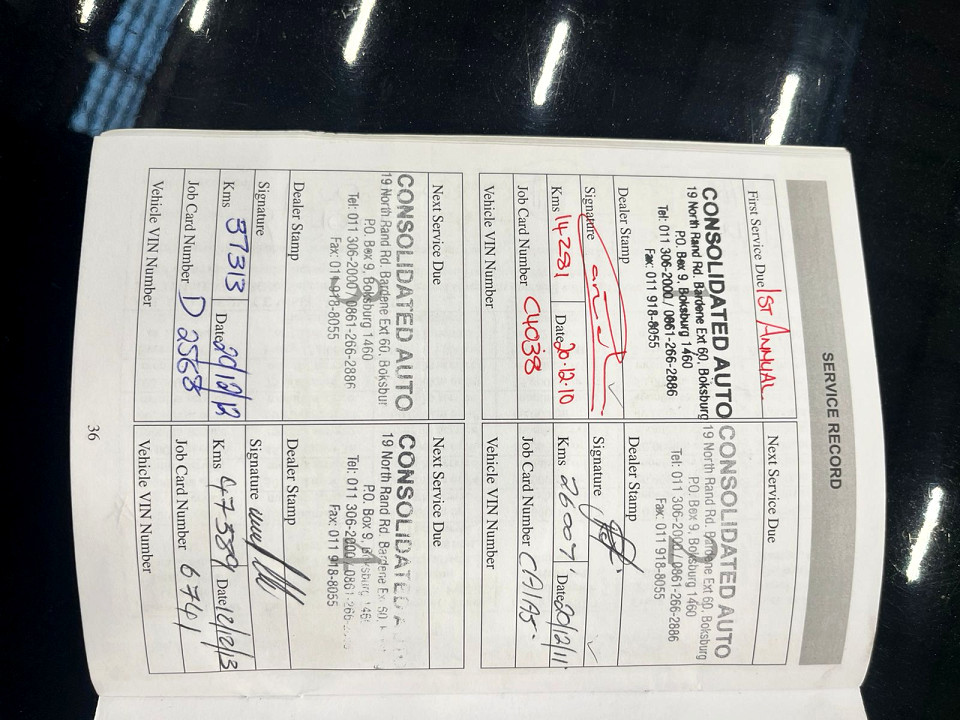 SERVICE RECORD
First Service Due 1ST ANNUAL
CONSOLIDATED AUTO
19 North Rand Rd. Bardene Ext 60, Boksburg
P.O. Box 9, Boksburg 1460
Tel: 011 306-2000 / 0861-266-2886
Fax: 011 918-8055
Dealer Stamp
Signature
Kms 14281 Date 20.12.10
Job Card Number C4038
Vehicle VIN Number
Next Service Due
CONSOLIDATED AUTO
19 North Rand Rd. Bardene Ext 60, Boksburg
P.O. Box 9, Boksburg 1460
Tel: 011 306-2000 / 0861-266-2886
Fax: 011 918-8055
Dealer Stamp
Signature
Kms 26007 Date 20/12/11
Job Card Number
Vehicle VIN Number
Next Service Due
CONSOLIDATED AUTO
19 North Rand Rd. Bardene Ext 60, Boksbur
P.O. Box 9, Boksburg 1460
Tel: 011 306-2000 / 0861-266-2886
Fax: 011 918-8055
Dealer Stamp
Signature
Kms 37313 Date 20/12/12
Job Card Number D2568
Vehicle VIN Number
Next Service Due
CONSOLIDATED A
19 North Rand Rd. Bardene Ex. 60,
P.O. Box 9, Boksburg 146
Tel: 011 306-2000 / 0861-266-
Fax: 011 918-8055
Dealer Stamp
Signature
Kms 47389 Date 12/12/13
Job Card Number 67401
Vehicle VIN Number
36